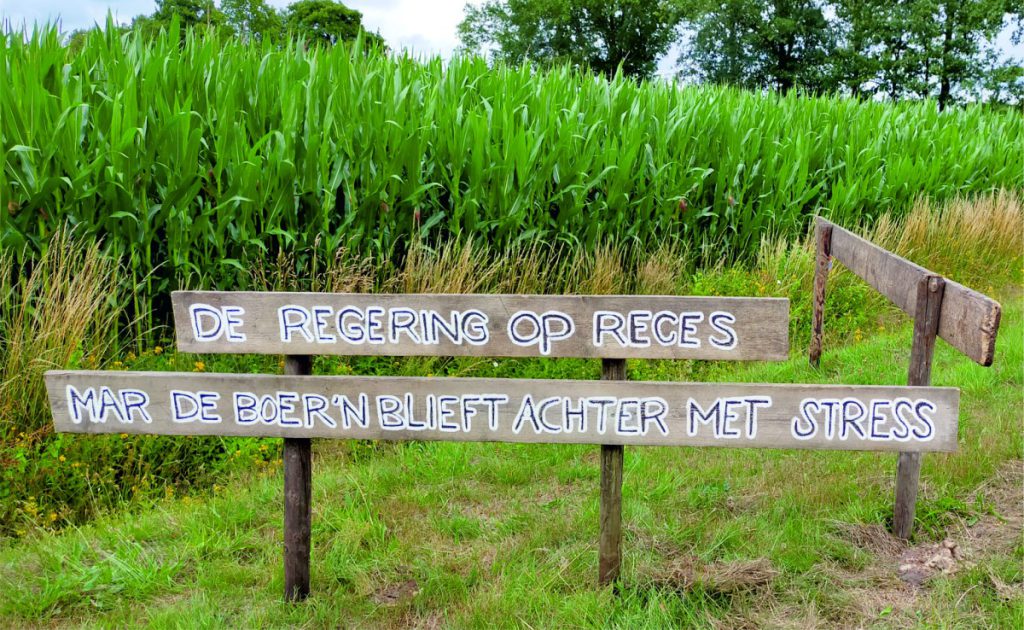 DE REGERING OP RECES
MAR DE BOER'N BLIEFT ACHTER MET STRESS